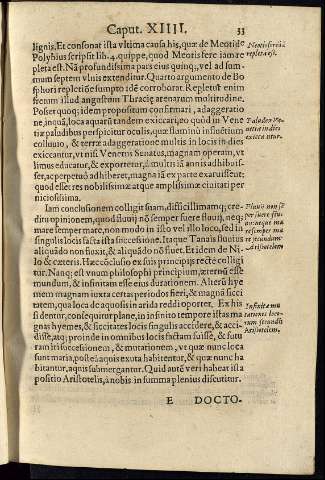 Caput. XIIII. 33
lignis. Et consonat ista vltima causa his, quæ de Meotide
Polybius scripsit lib. 4. quippe, quod Meotis fere iam re
pleta est. Nã profundissima pars eius quinq;, vel ad sum-
mum septem vlnis extenditur. Quarto argumento de Bo
sphori repletiõe sumpto idẽ corroborat. Repletus enim
fretum illud angustum Thracię arenarum multitudine.
Poset quoq; idem propositum confirmari, adaggeratio
ne, in quâ, loca aquarũ tandem exiccari, eo quòd in Vene
tiæ paludibus perspicitur oculis, quæ fluminũ insluuium
colluuio, & terræ adaggeratione multis in locis in dies
exiccantur, vt nisi Venetus Senatus, magnam operam, vt
limus educatur, & exportetur, â multis iã annis adhibuis-
set, ac perpetuò adhiberet, magna iã ex parte exaruissent:
quod esset res nobilissimæ atque amplissimæ ciuitati per
niciosissima.
Iam conclusionem colligit suam, difficillimamq;, cre-
ditu opinionem, quod fluuij nõ semper fuere fluuij, neq;
mare semper mare, non modo in isto vel illo loco, sed in
singulis locis facta ista successione. Itaque Tanais fluuius
aliquãdo non fluxit, & aliquãdo nõ fluet. Et idem de Ni-
lo & cæteris. Hæc cõclusio ex suis principijs rectè colligi
tur. Nanq; est vnum philosophi principium, æternũ esse
mundum, & infinitam esse eius durationem. Alterũ hye
mem magnam iuxta certas periodos fieri, & magnã sicci
tatem, qua loca de aquosis in arida reddi oportet. Ex his
sidentur, consequitur planè, in infinito tempore istas ma
gnas hyemes, & siccitates locis singulis accidere, & acci-
disse, atq; proinde in omnibus locis factam suisse, & futu
ram iri successionem, & mutationem, vt quæ nunc loca
sunt maria, posteà aquis exuta habitentur, & quæ nunc ha
bitantur, aquis submergantur. Quid autẽ veri habeat ista
positio Aristotelis, â nobis in summa plenius discutitur.
E DOCTO-
Meotis ferè iã
repleta est.
Paludes Ve-
netiæ in dies
exiccantur.
Fluuiũ non se
per fuere flu-
uios, neque ma
re semper ma
re secundum
Aristotelem
Infinita mu
tationes loco-
rum secundũ
Aristotelem.